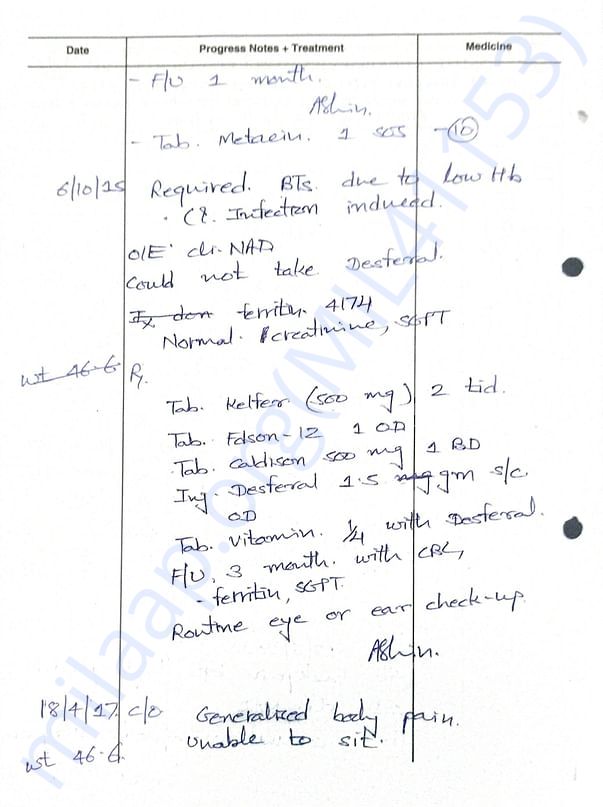 Date Progress Notes + Treatment Medicine
- F/U 1 month.
Ashin.
- Tab. Metacin. 1 SOS - 10
6/10/15 Required. BTs. due to low Hb
. C?. Infection induced.
O/E. cli. NAD
Could not take Desferral.
Ix don ferritin. 4174
Normal. creatinine, SGPT
wt 46.6 R.
Tab. Kelfer (500 mg) 2 tid.
Tab. Fdson-12 1 OD
Tab. Caldison 500 mg 1 BD
Inj. Desferral 1.5 gm s/c
OD
Tab. Vitamin. 1/4 with Desferral.
F/U, 3 month. with CBC,
- ferritin, SGPT.
Routine eye or ear check-up.
Ashin.
18/4/17 c/o Generalized body pain.
Unable to sit.
wt 46.6
milaap.org(MIL41153)